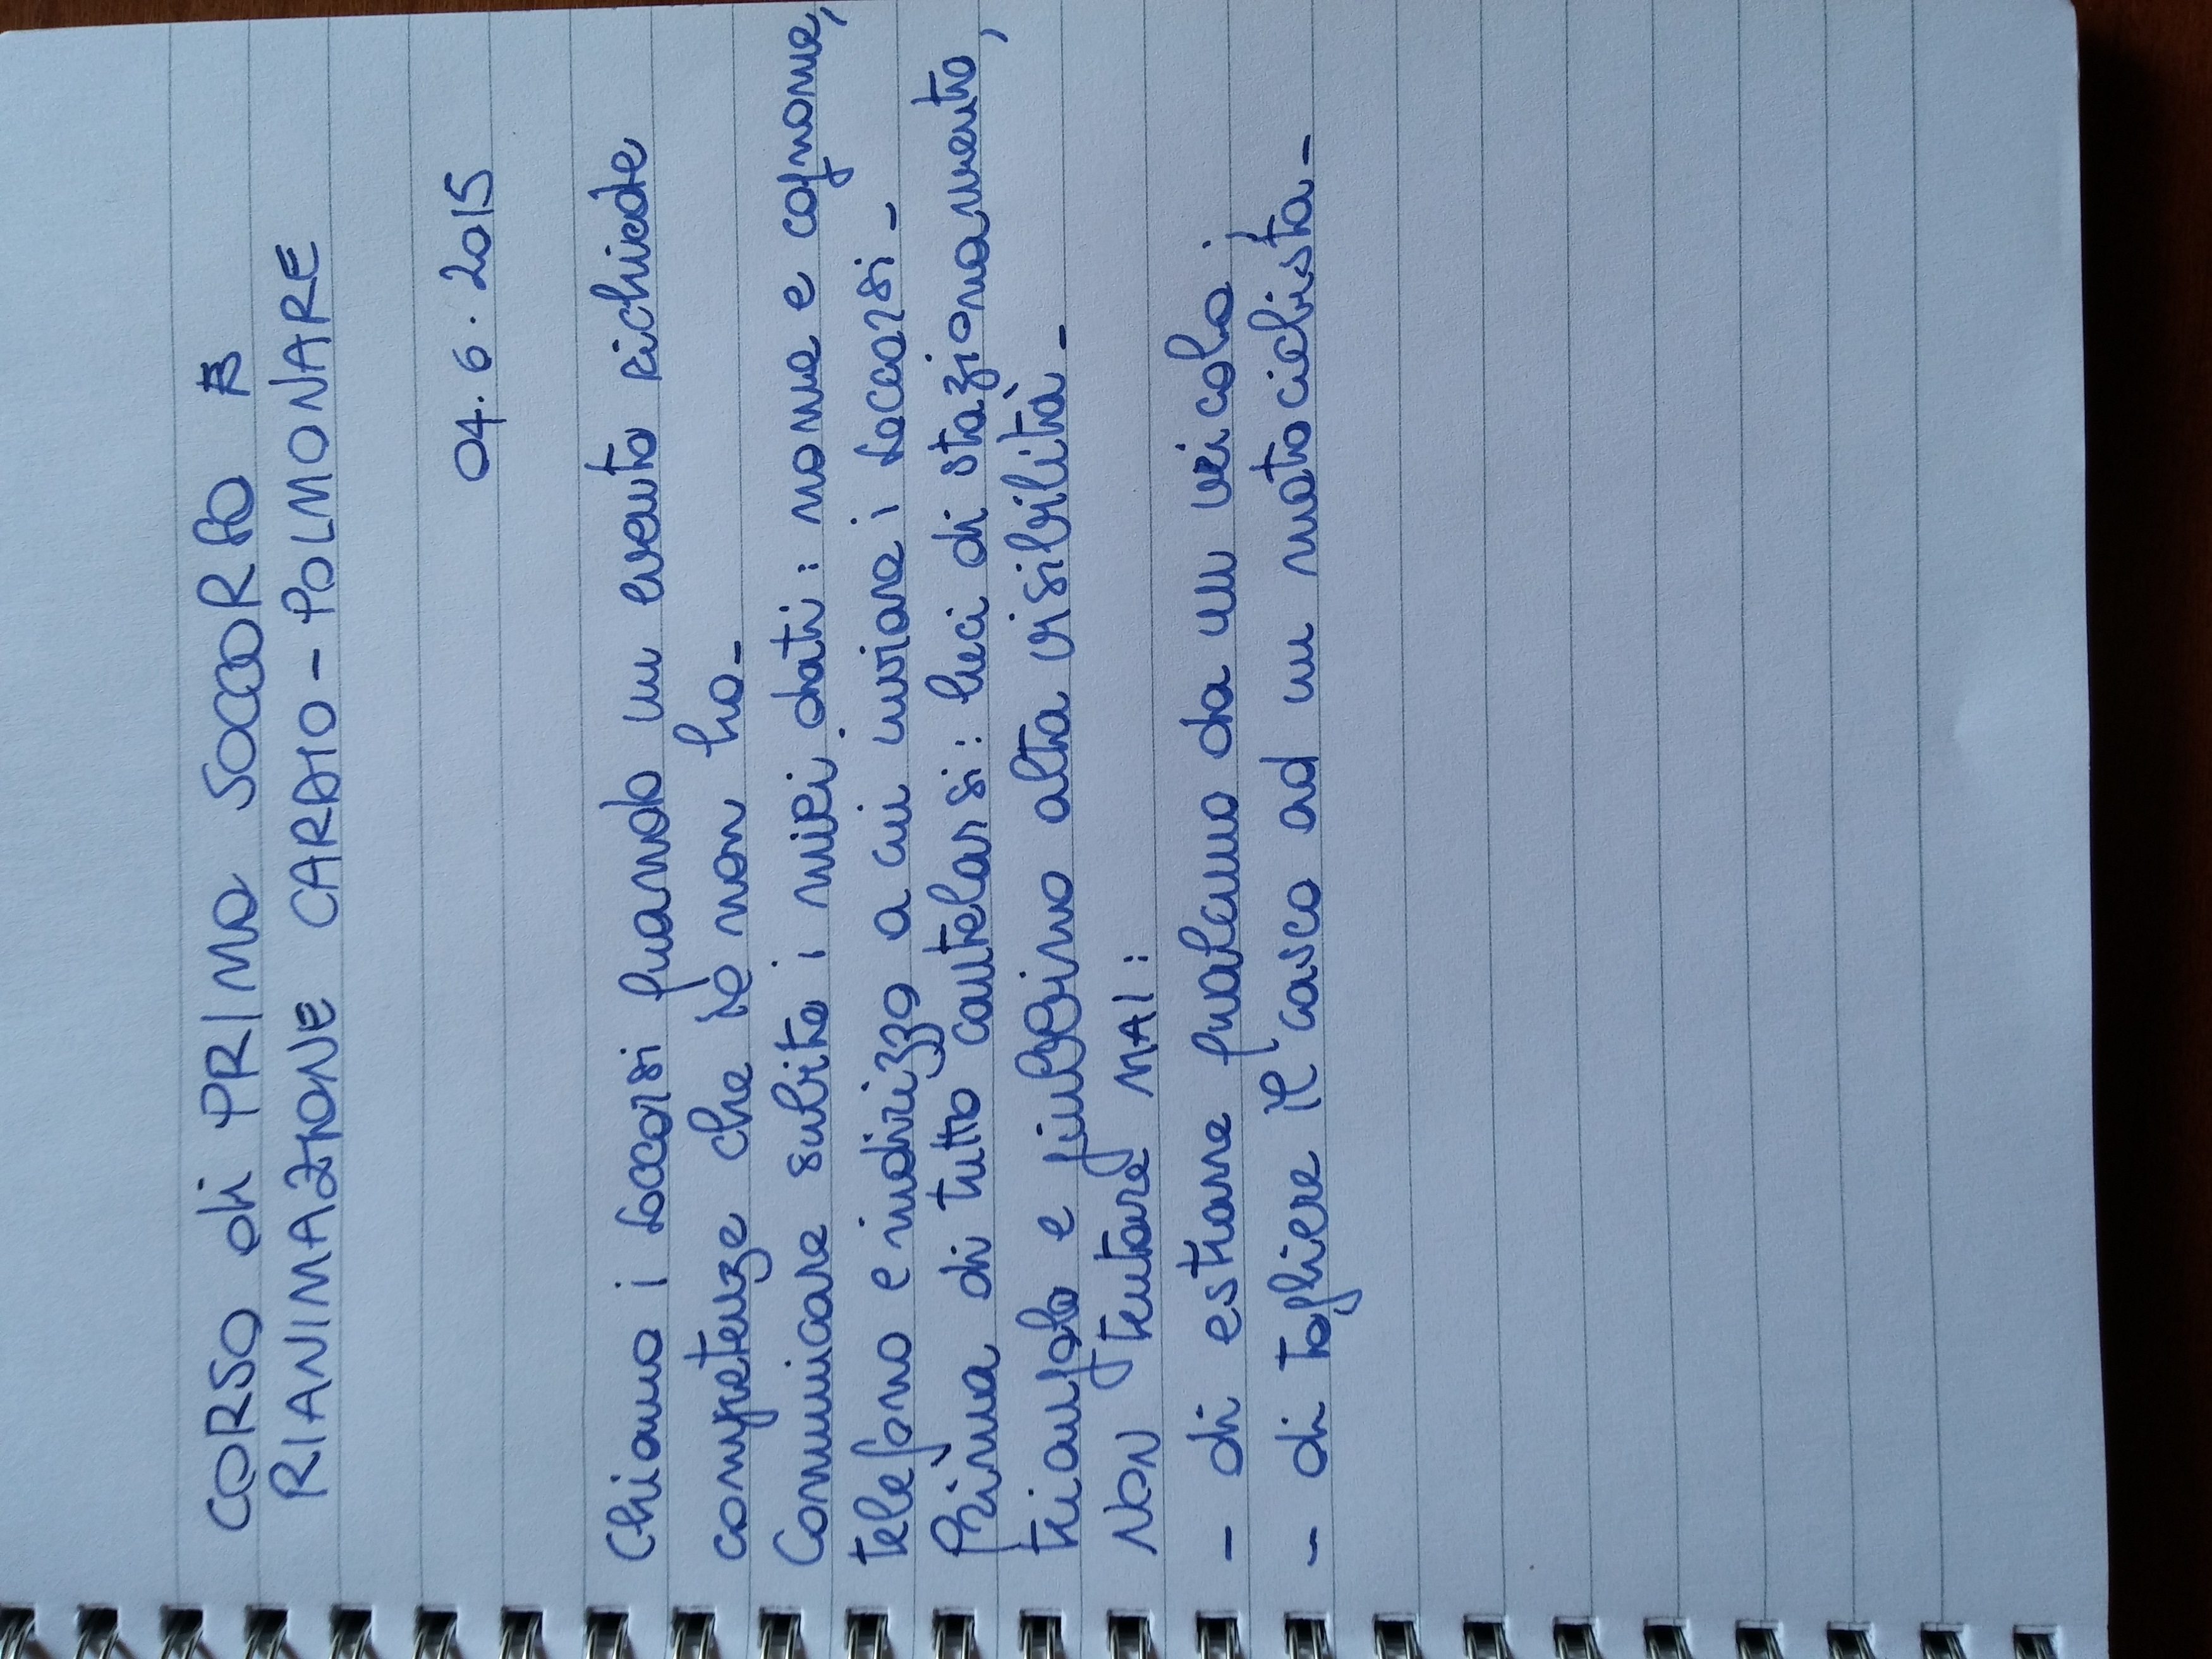 CORSO di PRIMO SOCCORSO B
RIANIMAZIONE CARDIO-POLMONARE
04.6.2015
Chiamo i soccorsi quando un evento richiede
competenze che io non ho-
Comunicare subito i miei dati: nome e cognome,
telefono e indirizzo a cui inviare i soccorsi-
Prima di tutto cautelarsi: luci di stazionamento,
triangolo e giubbino alta visibilità-
NON tentare MAI:
- di estrarre qualcuno da un veicolo;
- di togliere il casco ad un motociclista-